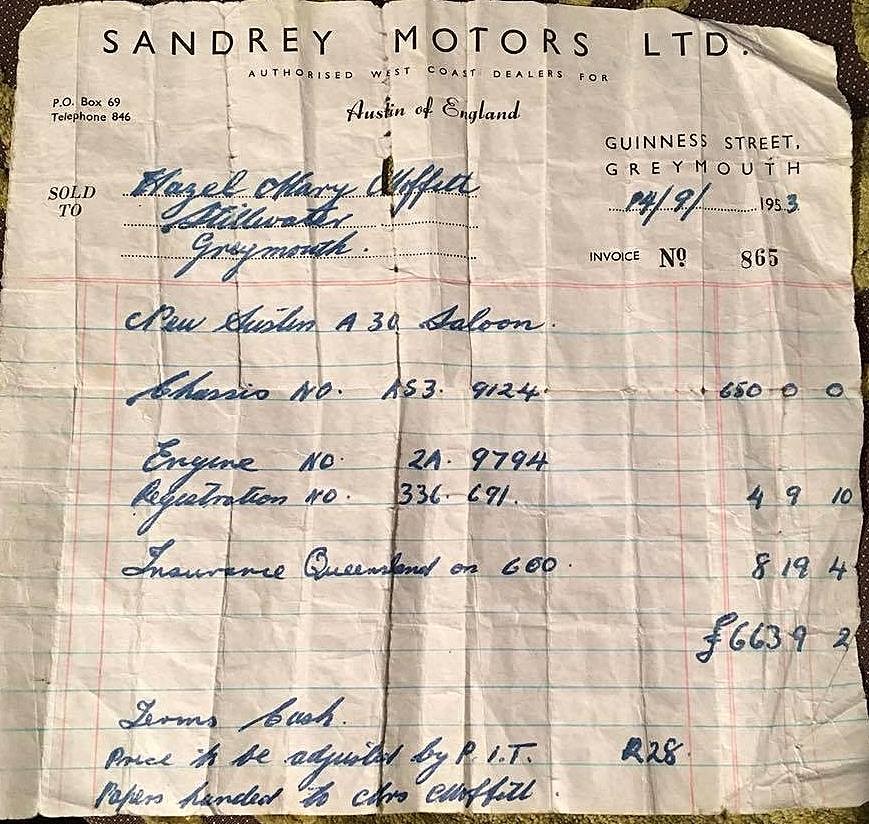 SANDREY MOTORS LTD.
AUTHORISED WEST COAST DEALERS FOR
Austin of England
P.O. Box 69
Telephone 846
GUINNESS STREET,
GREYMOUTH
SOLD TO Hazel Mary Moffett
Stillwater
Greymouth.
14/9/ 1953
INVOICE No 865
New Austin A 30 Saloon.
Chassis NO. AS3. 9124. 650 0 0
Engine NO. 2A. 9794
Registration NO. 336. 691. 4 9 10
Insurance Queensland on 600. 8 19 4
£663 9 2
Terms Cash.
Price to be adjusted by P.I.T. R28.
Papers handed to Mrs Moffett.